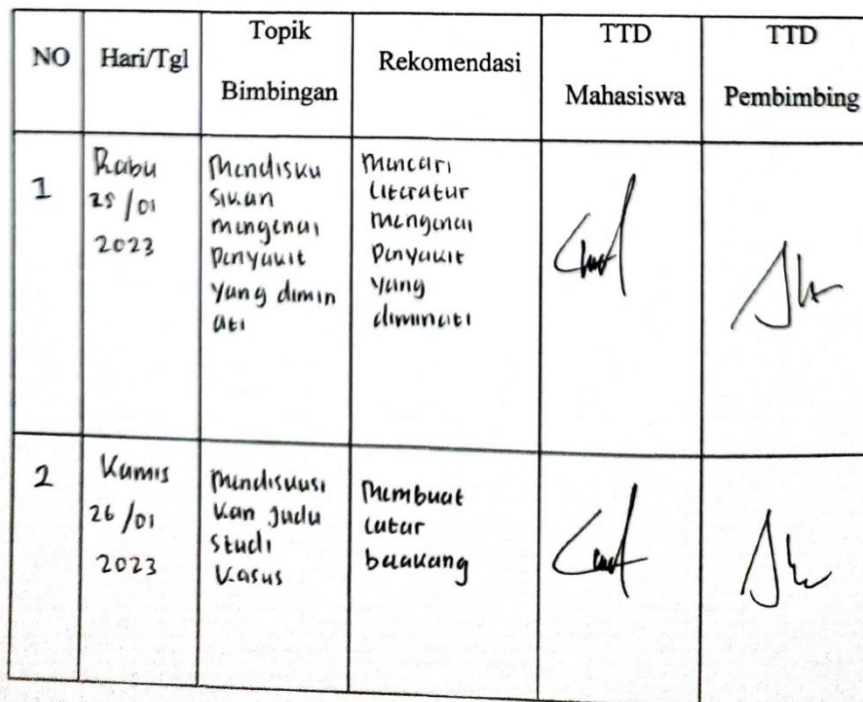 NO Hari/Tgl Topik Bimbingan Rekomendasi TTD Mahasiswa TTD Pembimbing
1
Rabu
25/01
2023
Mendisku
sikan
mengenai
Penyakit
yang dimin
ati
Mencari
Literatur
Mengenai
Penyakit
yang
diminati
2
Kamis
26/01
2023
Mendiskusi
kan Judu
studi
kasus
Membuat
latar
belakang